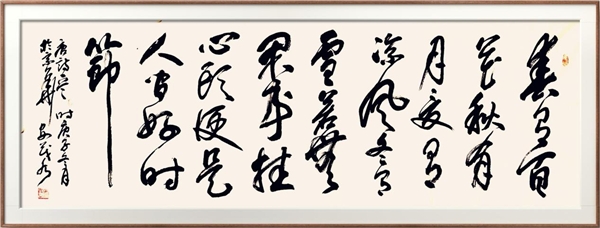 春有百
花秋有
月夏有
凉风冬有
雪若無
闲事挂
心头便是
人间好时
節
唐詩 时庚子五月
於京華